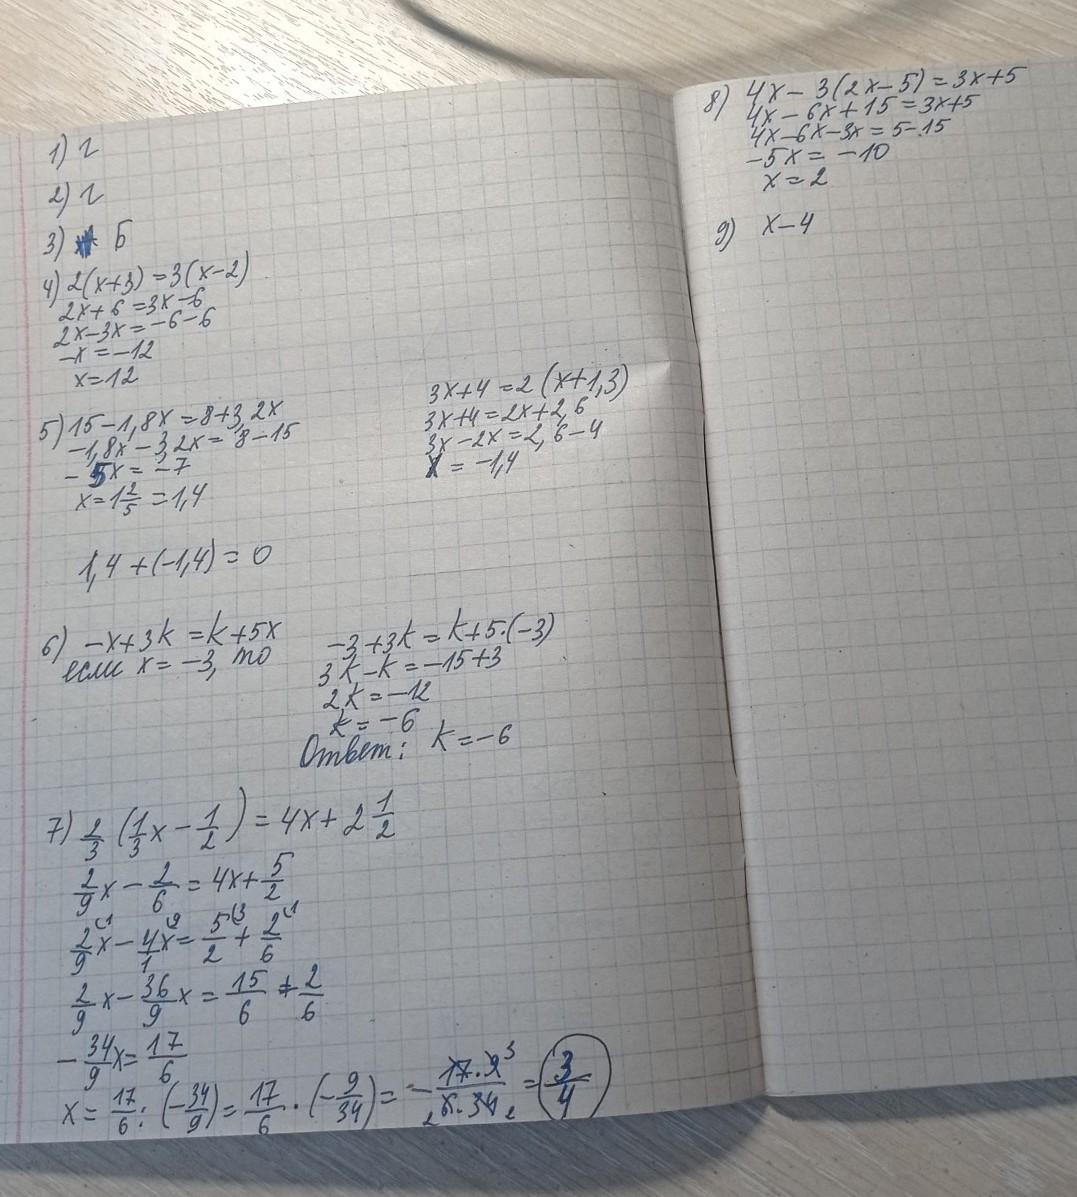 1) г
2) г
3) Б
4) 2(x+3) = 3(x-2)
2x+6 = 3x-6
2x-3x = -6-6
-x = -12
x = 12
5) 15-1,8x = 8+3,2x
-1,8x-3,2x = 8-15
-5x = -7
x = 1 2/5 = 1,4
3x+4 = 2(x+1,3)
3x+4 = 2x+2,6
3x-2x = 2,6-4
x = -1,4
1,4+(-1,4) = 0
6) -x+3k = k+5x
если x = -3, то
-3+3k = k+5·(-3)
3k-k = -15+3
2k = -12
k = -6
Ответ: k = -6
7) 2/3 (1/3 x - 1/2) = 4x + 2 1/2
2/9 x - 2/6 = 4x + 5/2
2/9 x - 4/1 x = 5/2 + 2/6
2/9 x - 36/9 x = 15/6 + 2/6
-34/9 x = 17/6
x = 17/6 : (-34/9) = 17/6 · (-9/34) = - 17·9 3/2 6·34 2 = 3/4
8) 4x-3(2x-5) = 3x+5
4x-6x+15 = 3x+5
4x-6x-3x = 5-15
-5x = -10
x = 2
9) x-4